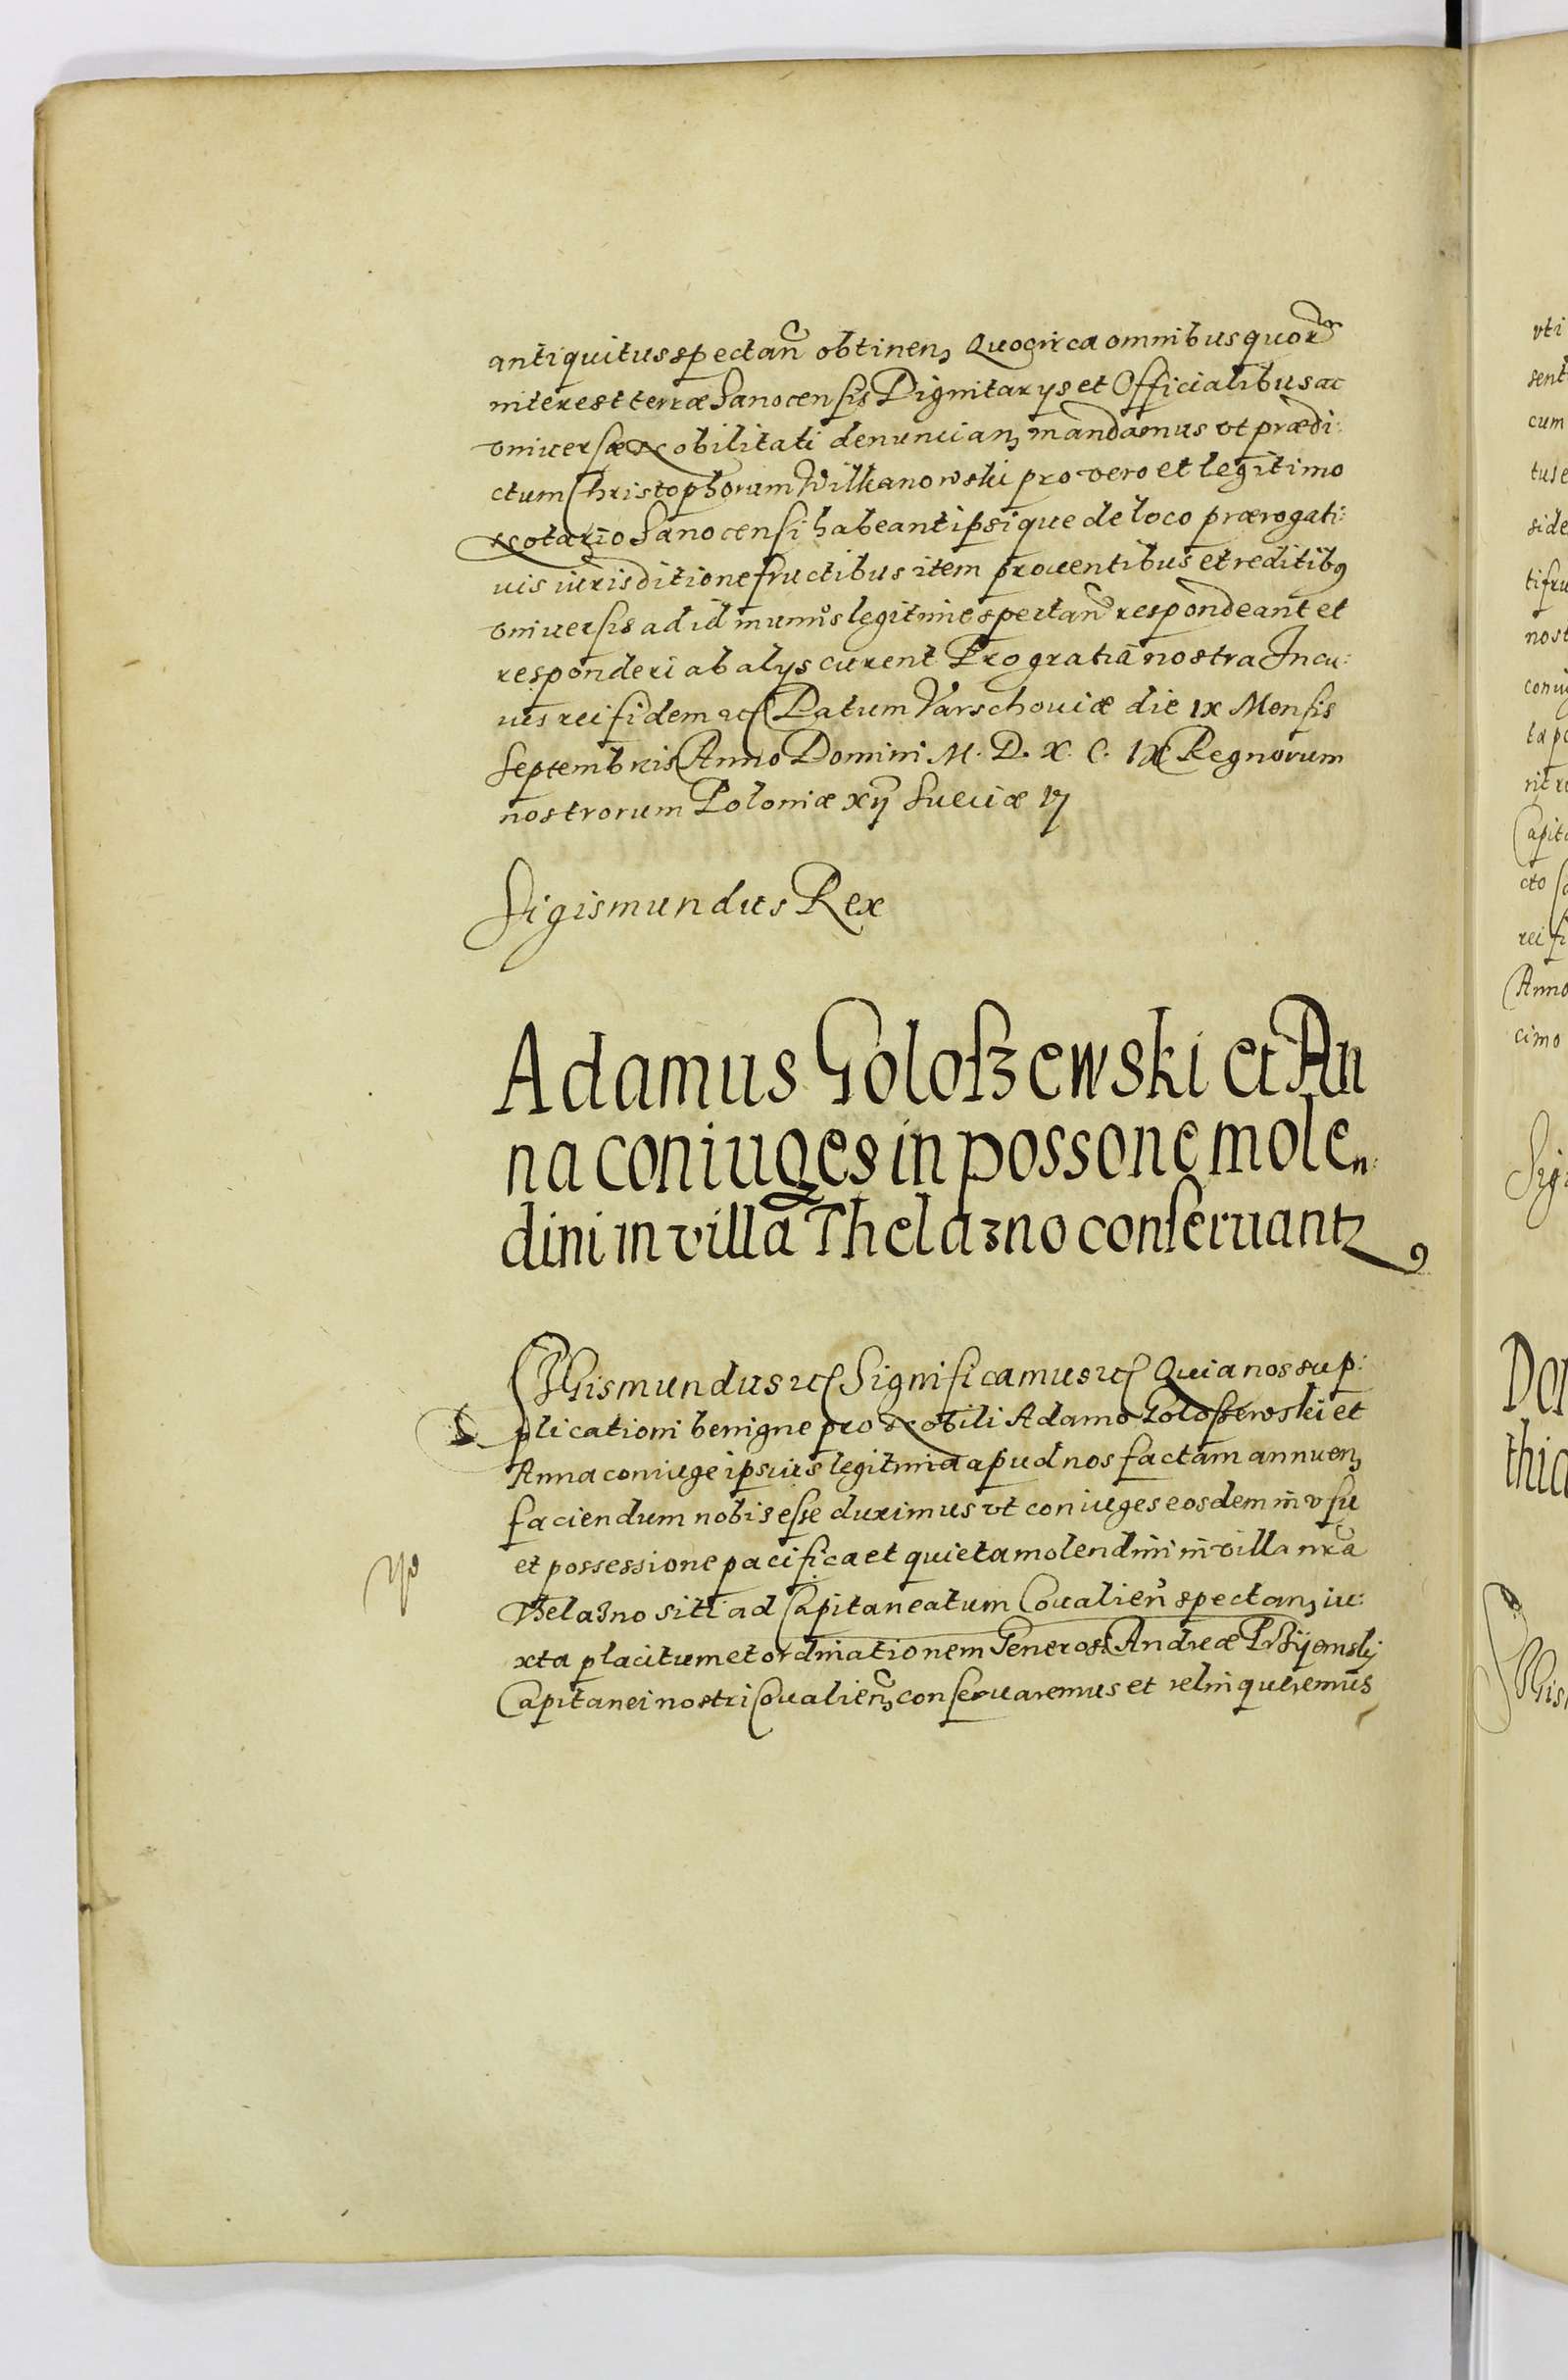 antiquitus spectan̄ obtinen, Quocirca omnibus quor
interest terræ Sanocensis Dignitarys et Officialibus ac
vniuersæ Nobilitati denuncian, mandamus vt prædi:
ctum Christophorum Wilkanowski pro vero et legitimo
Notario Sanocensi habeant ipsique de loco prærogati:
uis iurisditione fructibus item prouentibus et reditibus
vniuersis ad id munus legitime spectan̄ respondeant et
responderi ab alys curent Pro gratia nostra In cu:
ius rei fidem etc Datum Varschouiæ die IX Mensis
Septembris Anno Domini M. D. X. C. IX Regnorum
nostrorum Poloniæ xij Sueciæ vj
Sigismundus Rex
Adamus Goloszewski et An
na coniuges in possone molen:
dini in villa Thelazno conseruantz
SIGismundus etc Significamus etc Quia nos sup:
plicationi benigne pro Nobili Adamo Goloszewski et
Anna coniuge ipsius legitima apud nos factam annuen,
faciendum nobis esse duximus vt coniuges eosdem in vsu
et possessione pacifica et quieta molendini in villa nr̄a
Thelazno siti ad Capitaneatum Coualien̄ spectan, iu:
xta placitum et ordinationem Generosi Andreæ Przyemskj
Capitanei nostri Coualien, conseruaremus et relinqueremus
vti
sent
cum
tus e
side
tifru
nost
coniu
ta po
rit re
Capita
cto
rei fi
Anno
cimo
Sigi
Dor
thic
SIGis